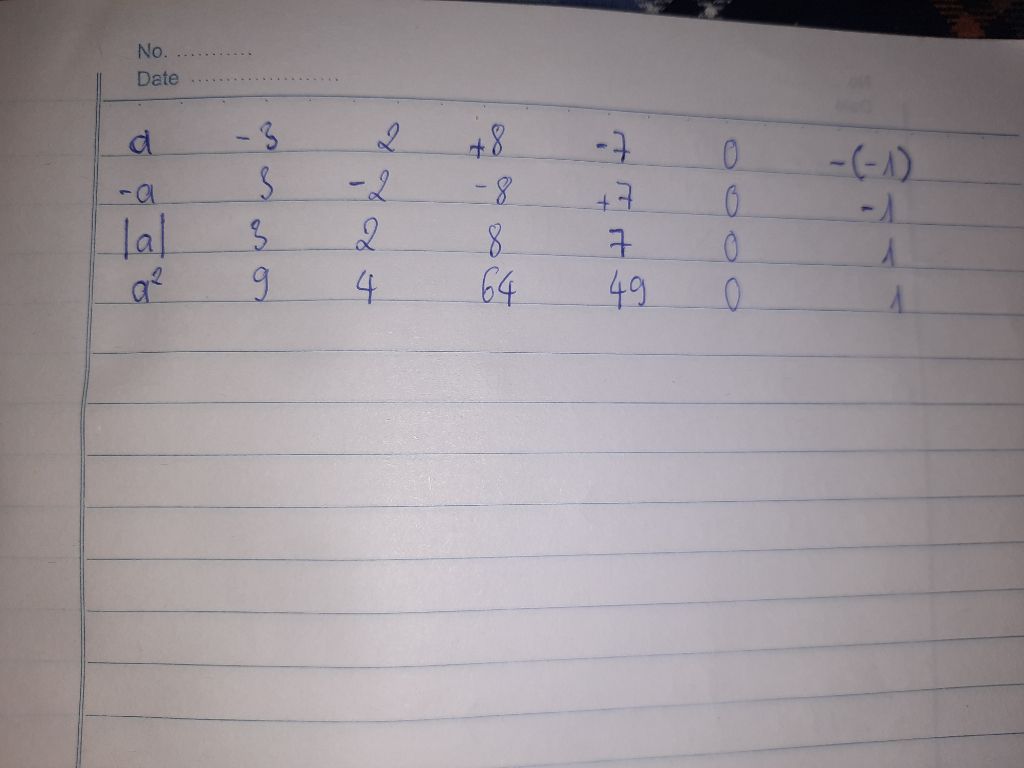 No. ...........
Date ......................
a -3 2 +8 -7 0 -(-1)
-a 3 -2 -8 +7 0 -1
|a| 3 2 8 7 0 1
a² 9 4 64 49 0 1